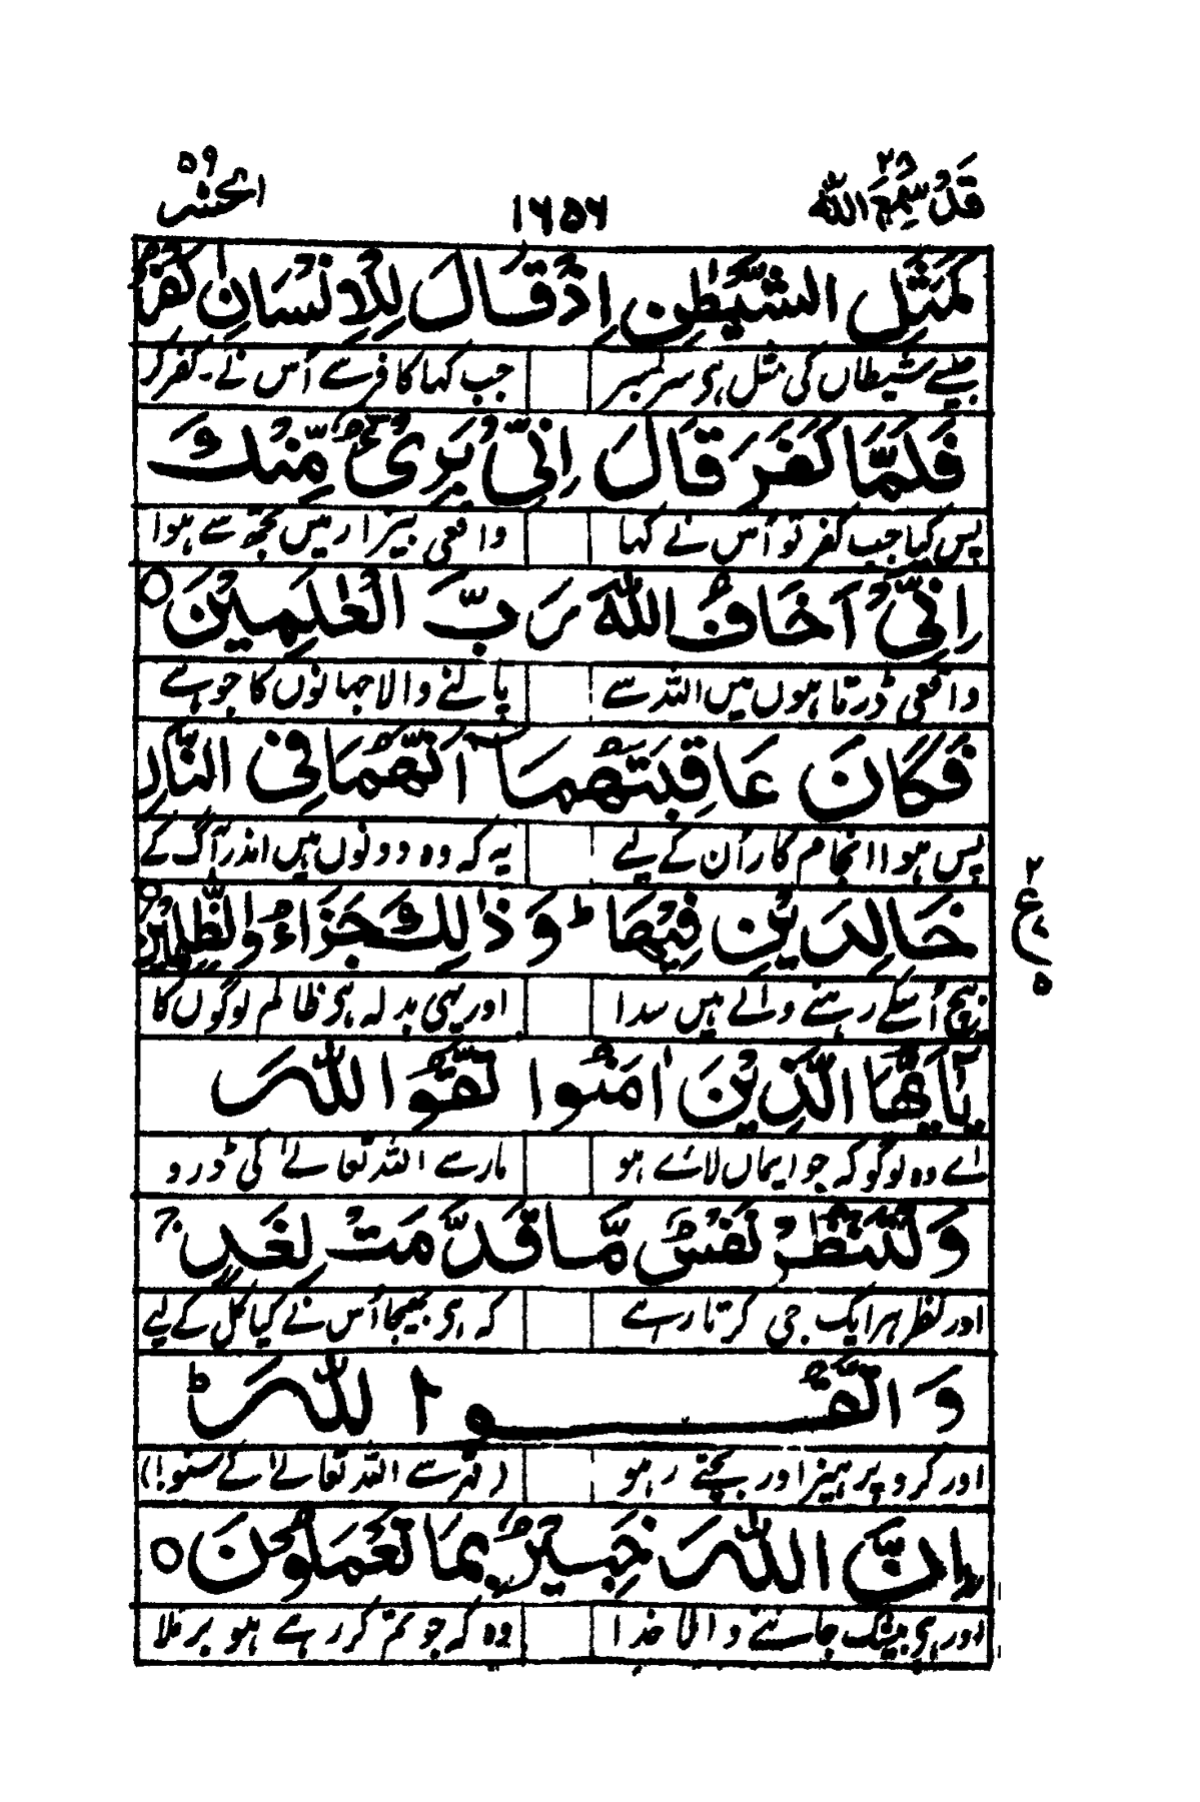 قَدْ سَمِعَ اللّٰه ۲۸ ۱۶۵۶ الحشر ۵۹
كَمَثَلِ الشَّيْطٰنِ اِذْ قَالَ لِلْاِنْسَانِ اكْفُرْ
جیسے شیطاں کی مثل ہی سر بسر جب کہا کافر سے اُس نے ۔ کفر کر
فَلَمَّا كَفَرَ قَالَ اِنِّيْ بَرِيْٓءٌ مِّنْكَ
پس کیا جب کفر تو اُس نے کہا واقعی بیزار میں تجھ سے ہوا
اِنِّيْٓ اَخَافُ اللّٰهَ رَبَّ الْعٰلَمِيْنَ ○
واقعی ڈرتا ہوں میں اللہ سے پالنے والا جہانوں کا جو ہے
فَكَانَ عَاقِبَتَهُمَآ اَنَّهُمَا فِي النَّارِ
پس ہوا انجام کار اُن کے لیے یہ کہ وہ دونوں ہیں اندر آگ کے
خَالِدَيْنِ فِيْهَا ؕ وَ ذٰلِكَ جَزٰٓؤُا الظّٰلِمِيْنَ ○
بیچ اُسکے رہنے والے ہیں سدا اور یہی بدلہ ہی ظالم لوگوں کا
۲ ع ۵
يٰٓاَيُّهَا الَّذِيْنَ اٰمَنُوا اتَّقُوا اللّٰهَ
اے وہ لوگو کہ جو ایماں لائے ہو مار سے اللہ تعالےٰ کی ڈرو
وَلْتَنْظُرْ نَفْسٌ مَّا قَدَّمَتْ لِغَدٍ ۚ
اور نظر ہر ایک جی کرتا رہے کہ ہی بھیجا اُس نے کیا کل کے لیے
وَ اتَّقُوا اللّٰهَ ؕ
اور کرو پرہیز اور بچتے رہو (قہر سے اللہ تعالےٰ کے سنو!)
اِنَّ اللّٰهَ خَبِيْرٌۢ بِمَا تَعْمَلُوْنَ ○
اور ہی بیشک جاننے والا خدا وہ کہ جو تم کر رہے ہو برملا